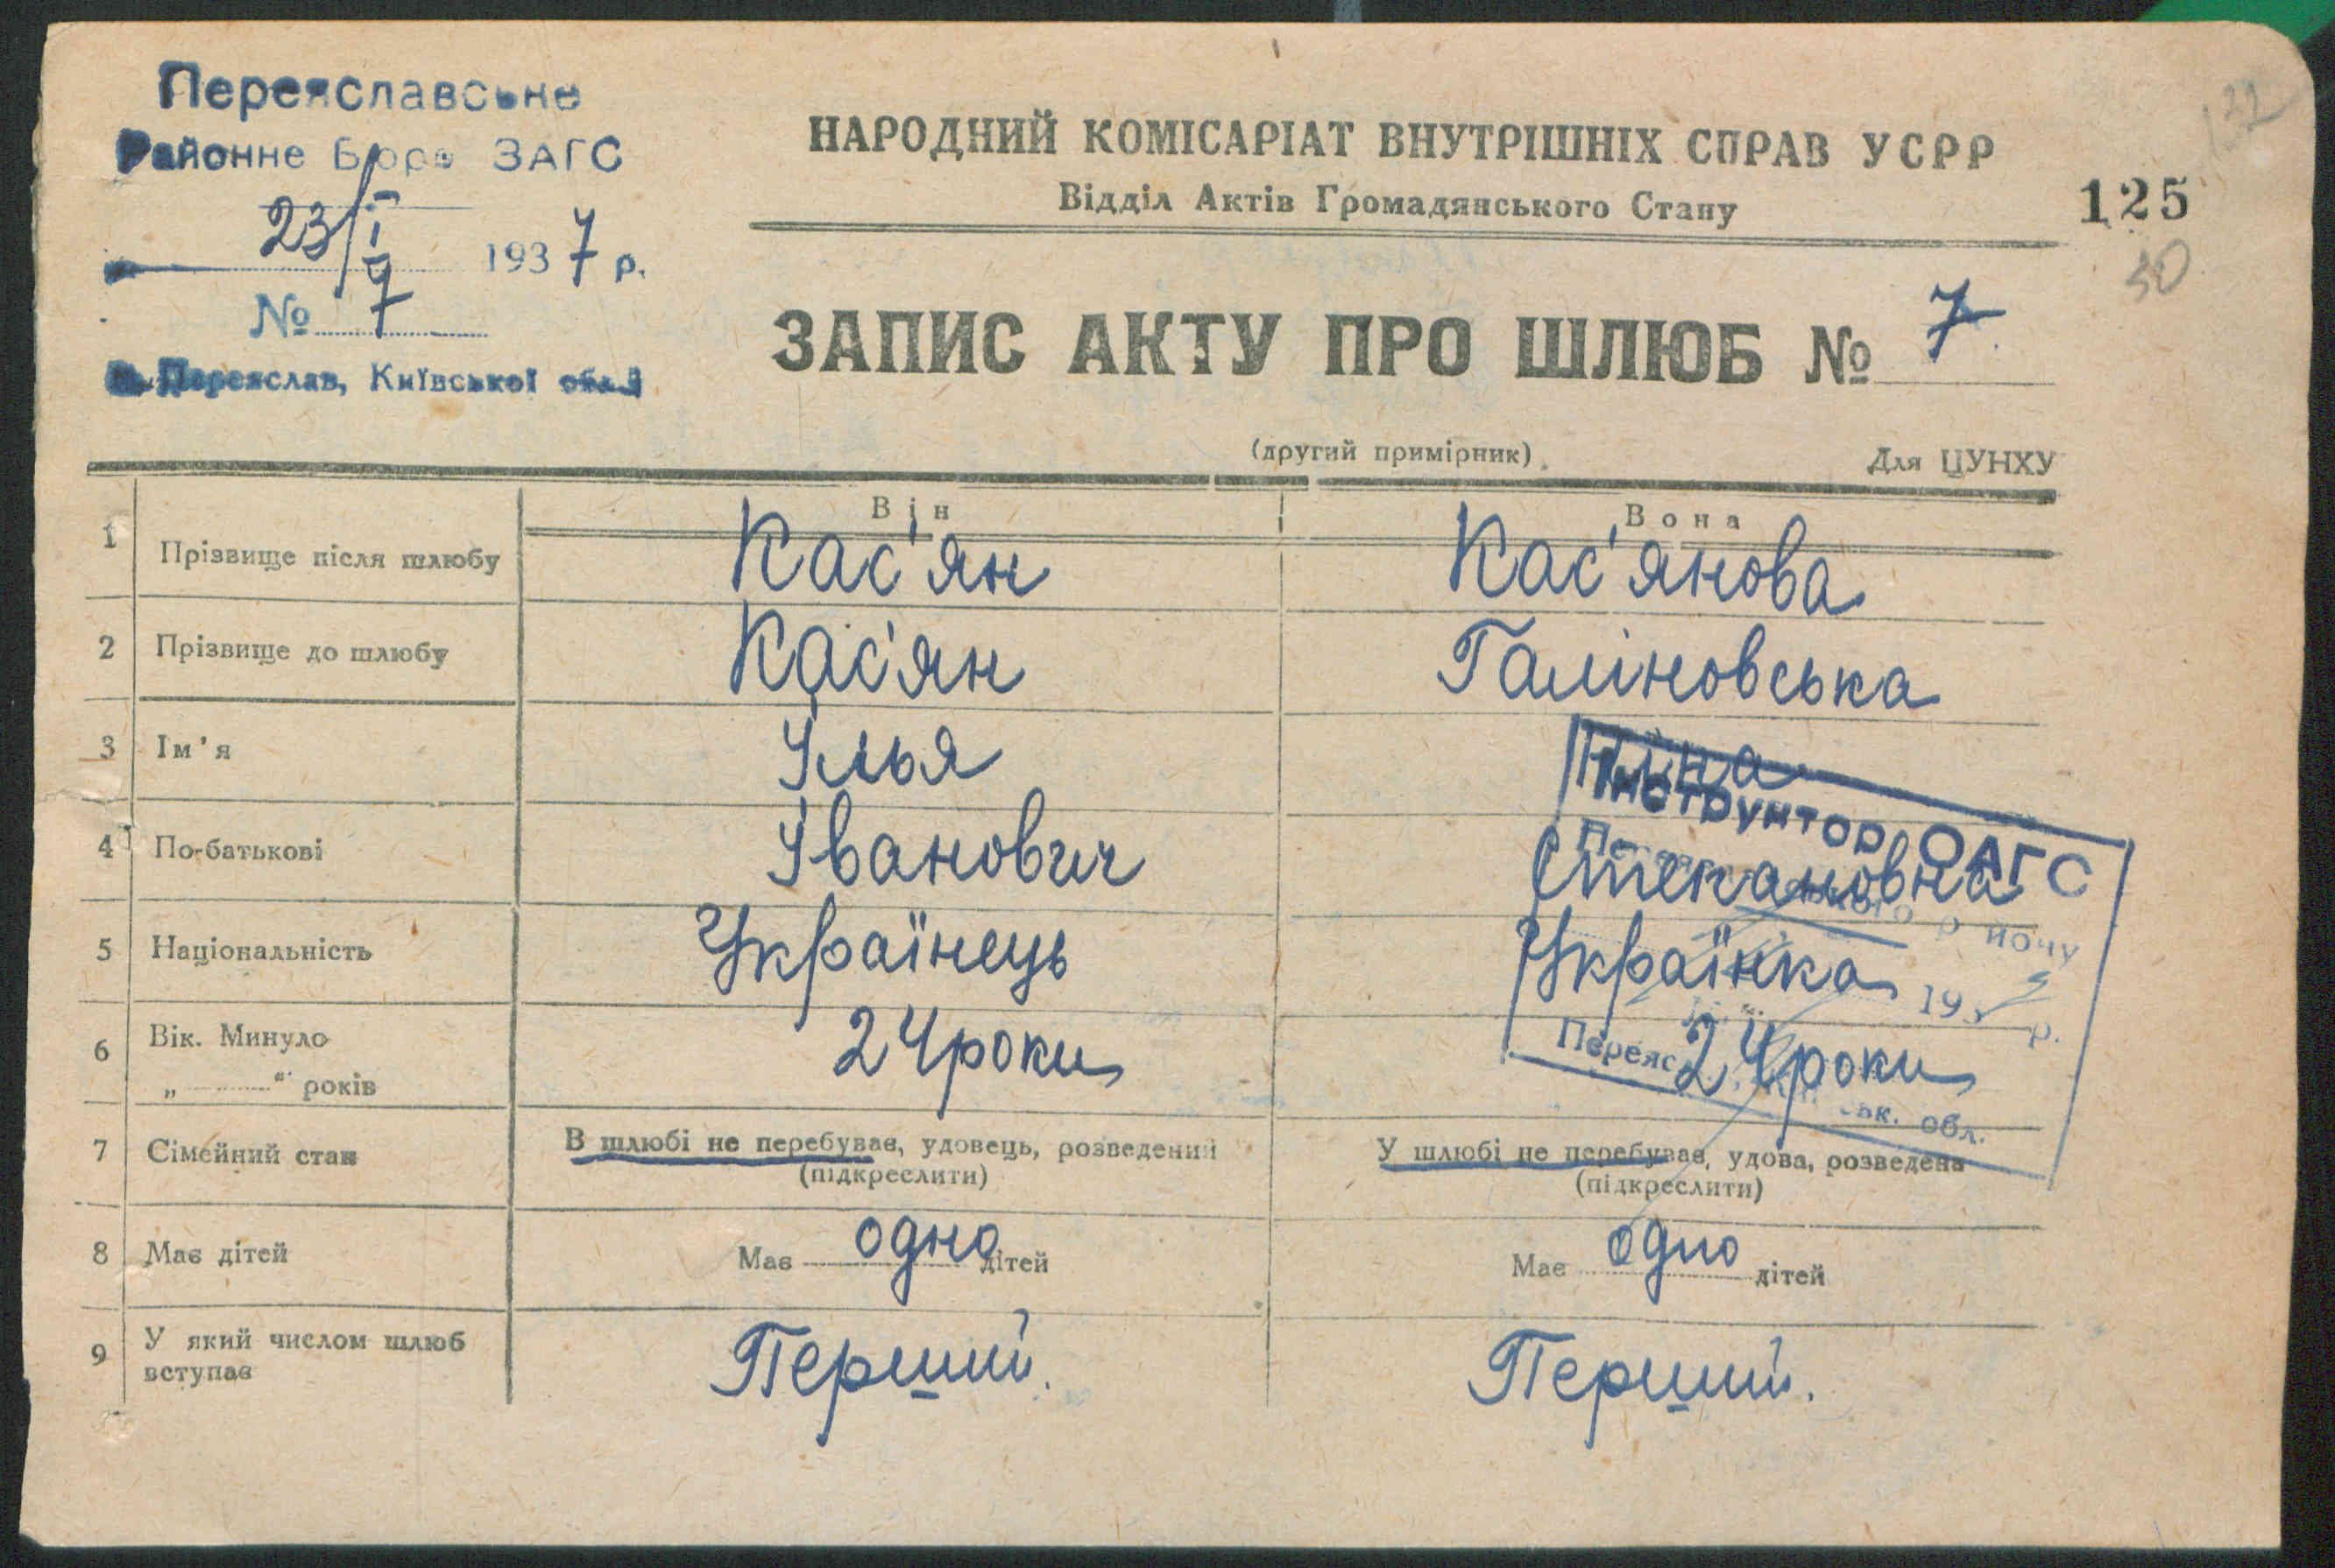 Переяславське
Районне Бюро ЗАГС
23/I 1937 р.
№ 7
м. Переяслав, Київської обл.
НАРОДНИЙ КОМІСАРІАТ ВНУТРІШНІХ СПРАВ УСРР
Відділ Актів Громадянського Стану
122
125
50
ЗАПИС АКТУ ПРО ШЛЮБ № 7
(другий примірник)
Для ЦУНХУ
Він Вона
1 Прізвище після шлюбу Кас'ян Кас'янова
2 Прізвище до шлюбу Кас'ян Галіновська
3 Ім'я Ілья Ніна
Інструктор ОАГС
4 По-батькові Іванович Степановна
5 Національність Українець Українка
193 р.
6 Вік. Минуло „ “ років 24 роки 24 роки
обл.
7 Сімейний стан В шлюбі не перебуває, удовець, розведений У шлюбі не перебуває, удова, розведена
(підкреслити) (підкреслити)
8 Має дітей Має одно дітей Має одно дітей
9 У який числом шлюб Перший. Перший.
вступає